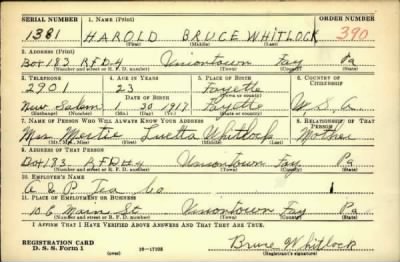 SERIAL NUMBER 1. NAME (Print) ORDER NUMBER
1381 HAROLD BRUCE WHITLOCK 390
(First) (Middle) (Last)
2. ADDRESS (Print)
Box 183 R.F.D.4 Uniontown Fay Pa
(Number and street or R. F. D. number) (Town) (County) (State)
3. TELEPHONE 4. AGE IN YEARS 5. PLACE OF BIRTH 6. COUNTRY OF CITIZENSHIP
2901 23 Fayette
DATE OF BIRTH (Town or county)
New Salem 1 30 1917 Fayette U. S. A.
(Exchange) (Number) (Mo.) (Day) (Yr.) (State or country)
7. NAME OF PERSON WHO WILL ALWAYS KNOW YOUR ADDRESS 8. RELATIONSHIP OF THAT PERSON
Mrs. Luetta Whitlock Mother
(Mr., Mrs., Miss) (First) (Middle) (Last)
9. ADDRESS OF THAT PERSON
Box 183 R.F.D.4 Uniontown Fay Pa
(Number and street or R. F. D. number) (Town) (County) (State)
10. EMPLOYER'S NAME
A & P Tea Co
11. PLACE OF EMPLOYMENT OR BUSINESS
10 E Main St. Uniontown Fay Pa
(Number and street or R. F. D. number) (Town) (County) (State)
I AFFIRM THAT I HAVE VERIFIED ABOVE ANSWERS AND THAT THEY ARE TRUE.
REGISTRATION CARD
D. S. S. Form 1 (over) 16-17105 Bruce Whitlock
(Registrant's signature)